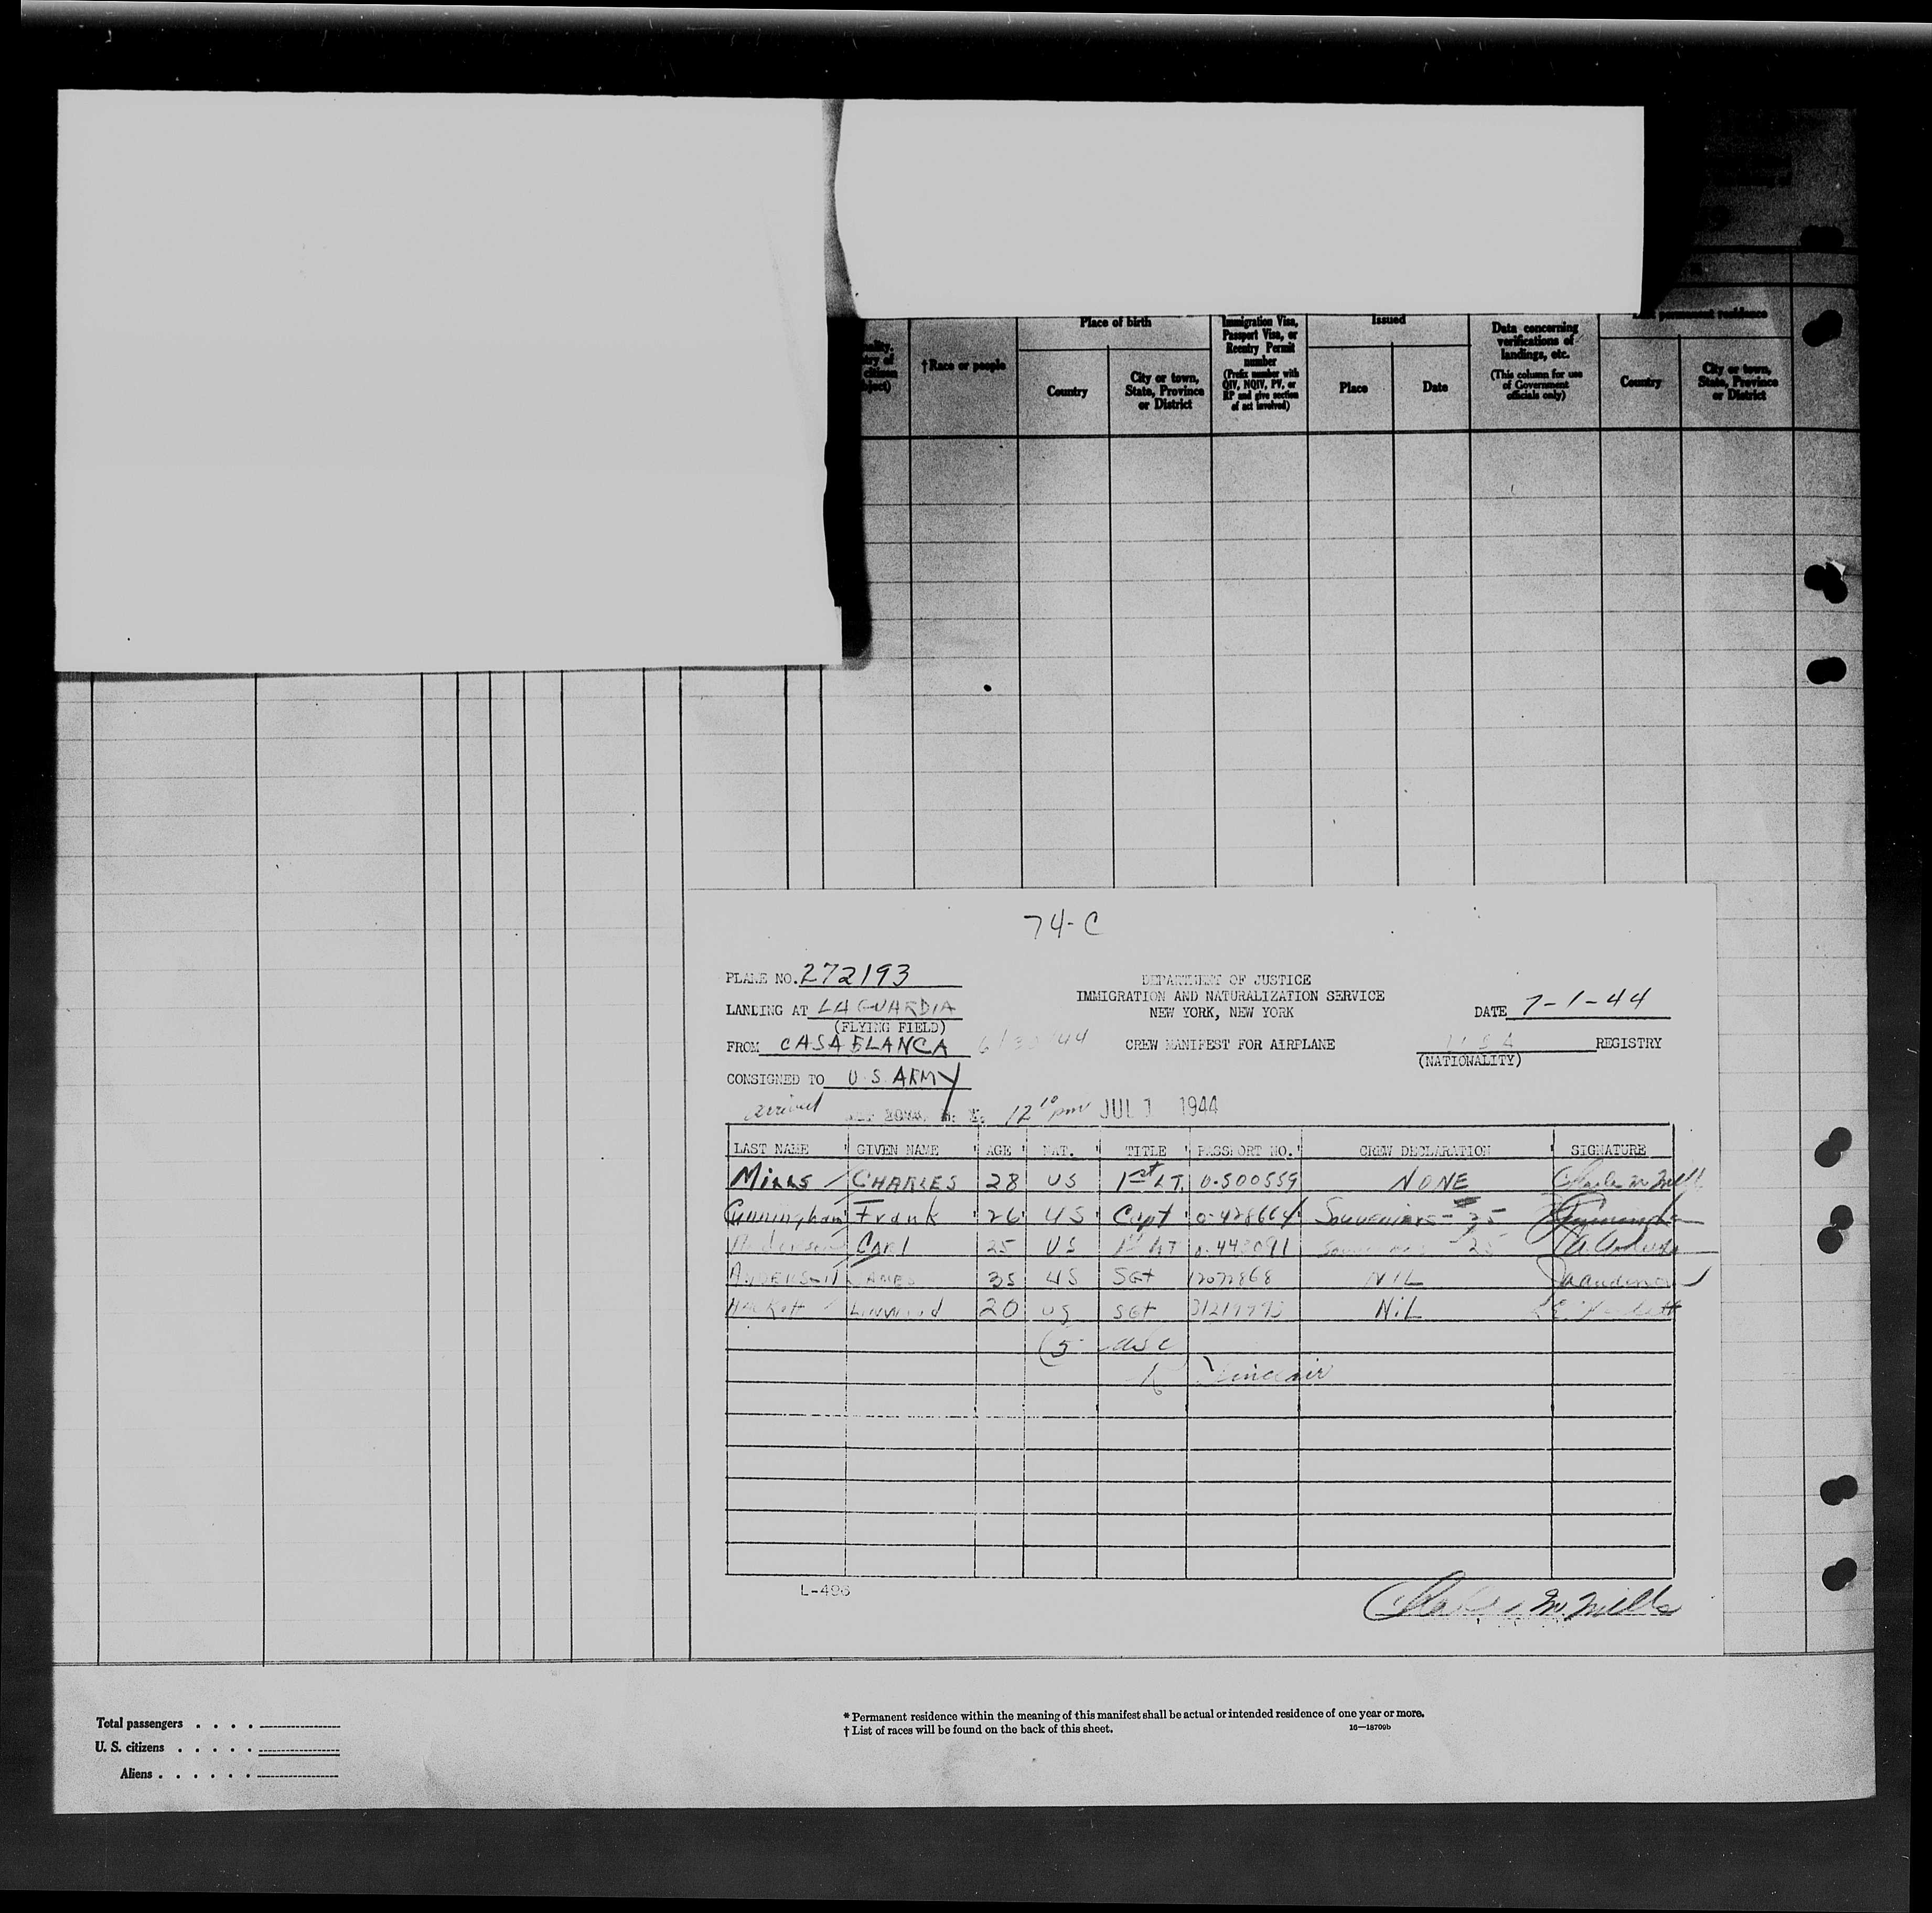 Place of birth
Immigration Visa, Passport Visa, or Reentry Permit number (Prefix number with QIV, NQIV, PV, or RP and give section of act involved)
Issued
Data concerning verifications of landings, etc. (This column for use of Government officials only)
permanent residence
† Race or people
Country
City or town, State, Province or District
Place
Date
Country
City or town, State, Province or District
74-C
PLANE NO. 272193
DEPARTMENT OF JUSTICE
IMMIGRATION AND NATURALIZATION SERVICE
LANDING AT LA GUARDIA
NEW YORK, NEW YORK
DATE 7-1-44
(FLYING FIELD)
FROM CASABLANCA 6/30/44
CREW MANIFEST FOR AIRPLANE
USA REGISTRY
(NATIONALITY)
CONSIGNED TO U.S. ARMY
arrived 12 10 pm JUL 1 1944
LAST NAME GIVEN NAME AGE NAT. TITLE PASSPORT NO. CREW DECLARATION SIGNATURE
MILLS CHARLES 28 US 1st LT. 0-500559 NONE Charles M Mills
Cunningham Frank 26 US Capt 0-428664 Souveniers - 25
CARl 25 US 1st LT 0-443091 25
ANDERSON JAMES 35 US SGt 12072868 NIL
Hackett Linwood 20 US SGt NiL
(5 usc
Sinclair
L-496
Charles M. Mills
Total passengers . . . .
U. S. citizens . . . . .
Aliens . . . . . .
* Permanent residence within the meaning of this manifest shall be actual or intended residence of one year or more.
† List of races will be found on the back of this sheet.
16—18709b